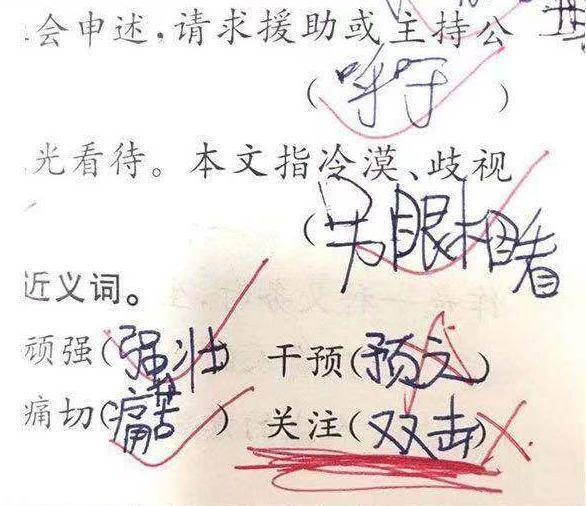 会申述,请求援助或主持公
(呼吁)
光看待。本文指冷漠、歧视
(另眼相看
近义词。
顽强(强壮) 干预(预交)
痛切(痛苦) 关注(双击)